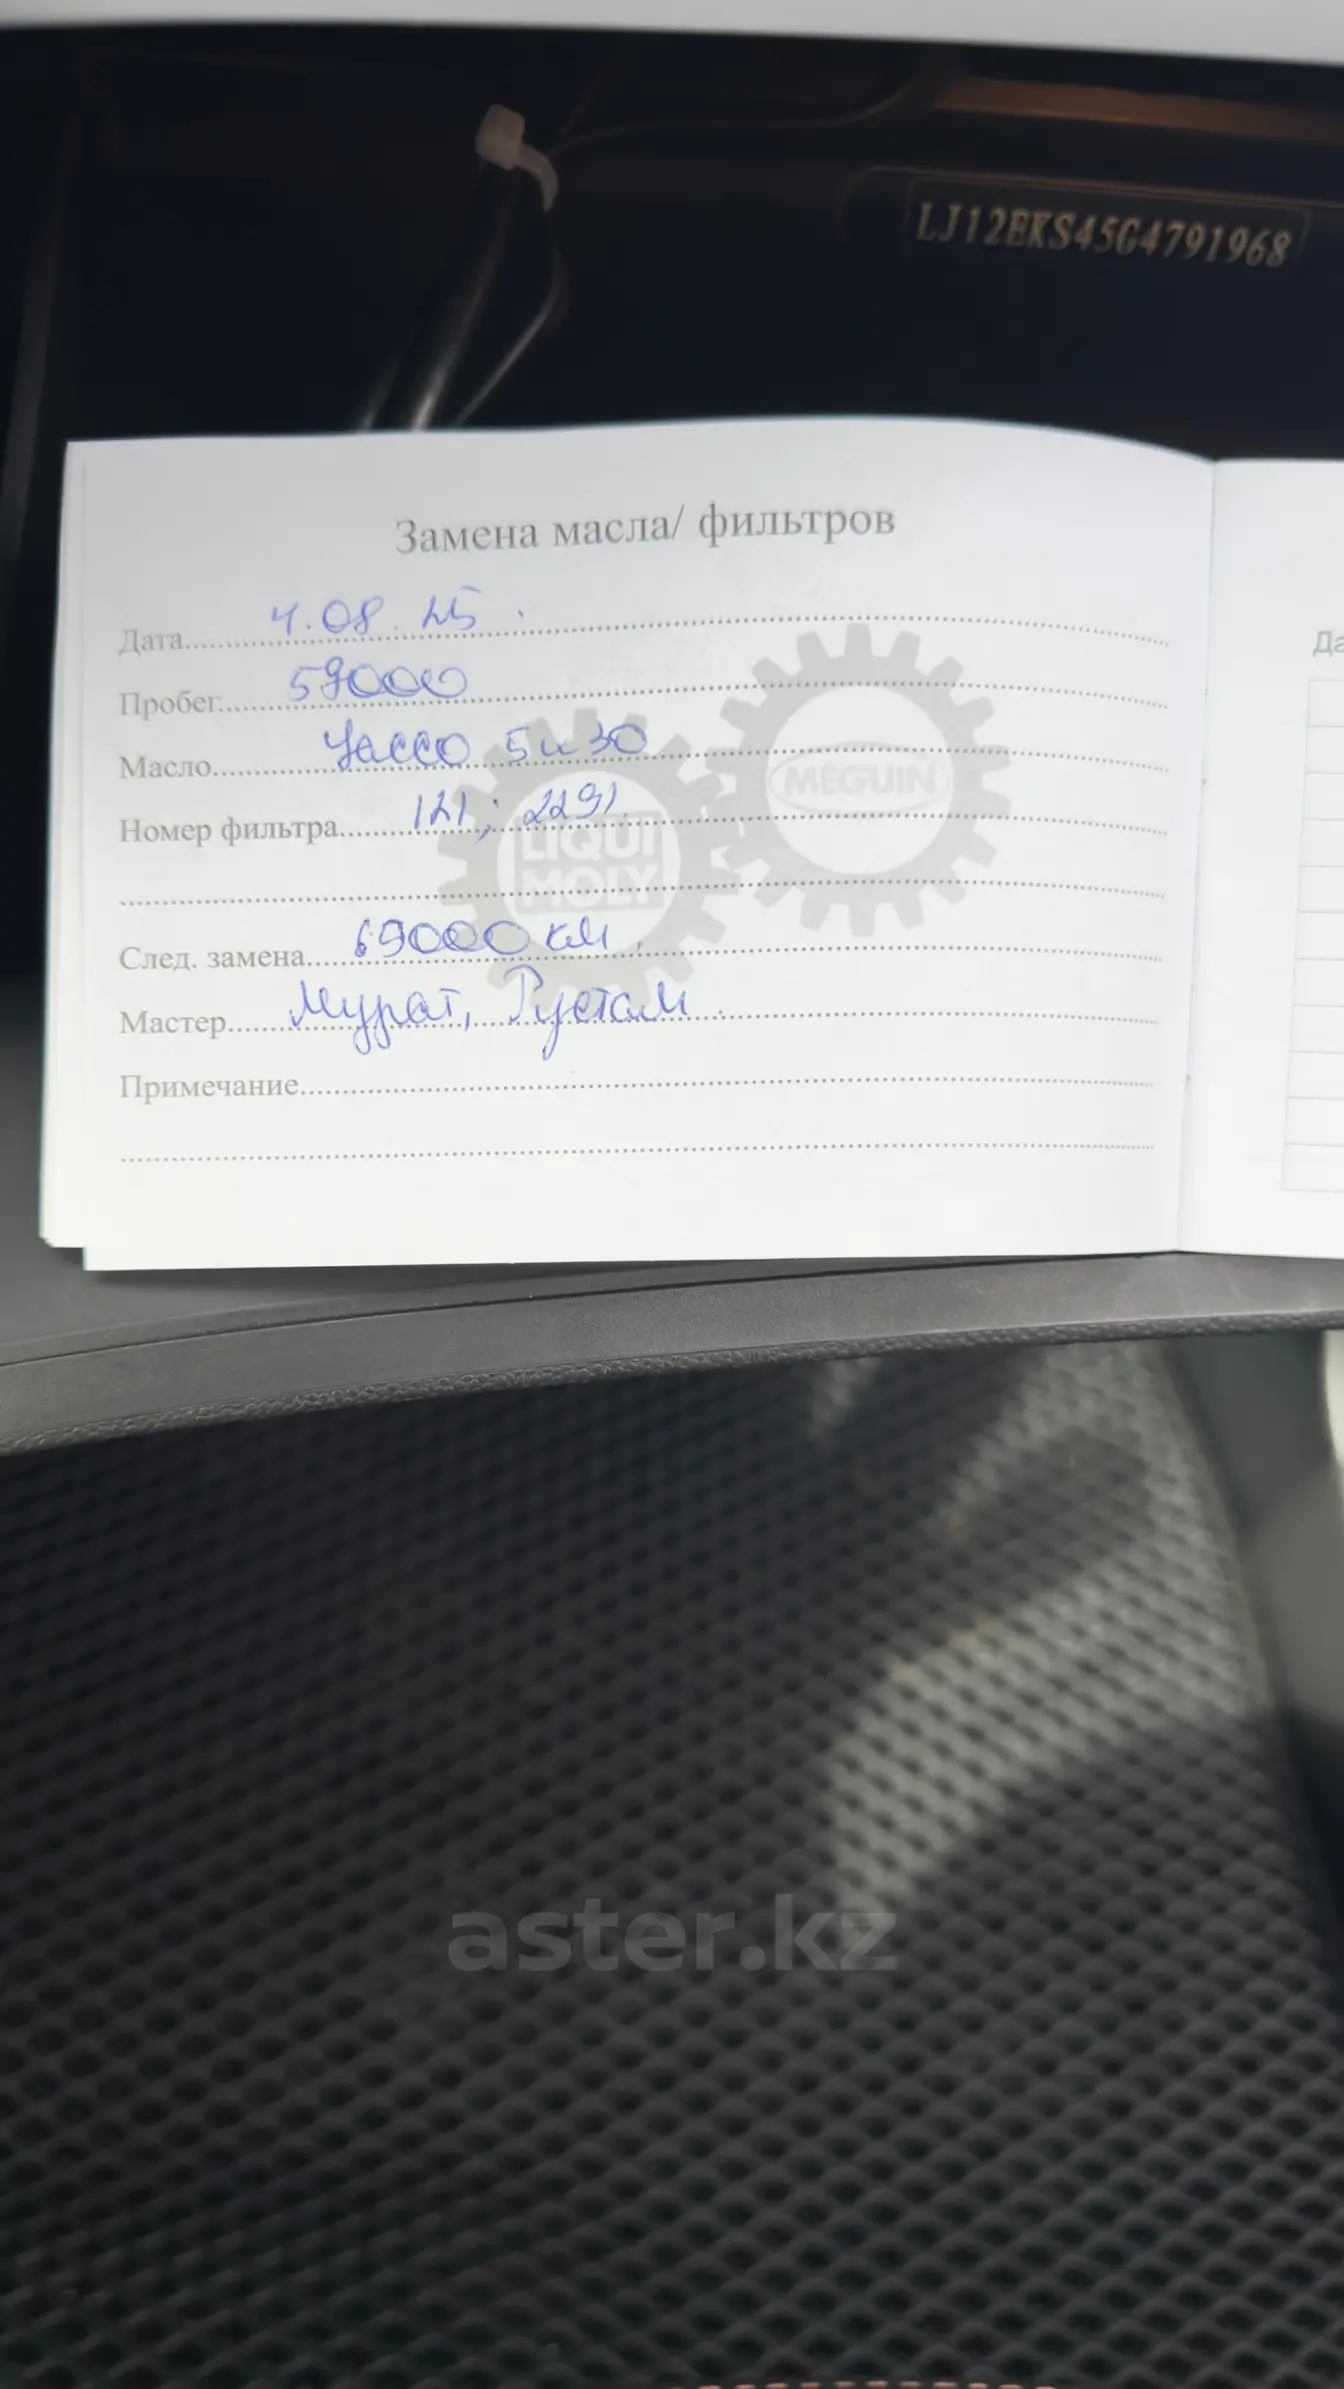 LJ12EKS45G4791968
Замена масла/ фильтров
Дата 4.08.25.
Пробег 59000
Масло Yacco 5w30
Номер фильтра 121; 2291
LIQUI MOLY
MEGUIN
След. замена 69000 км.
Мастер Мурат, Рустам.
Примечание
Да
aster.kz